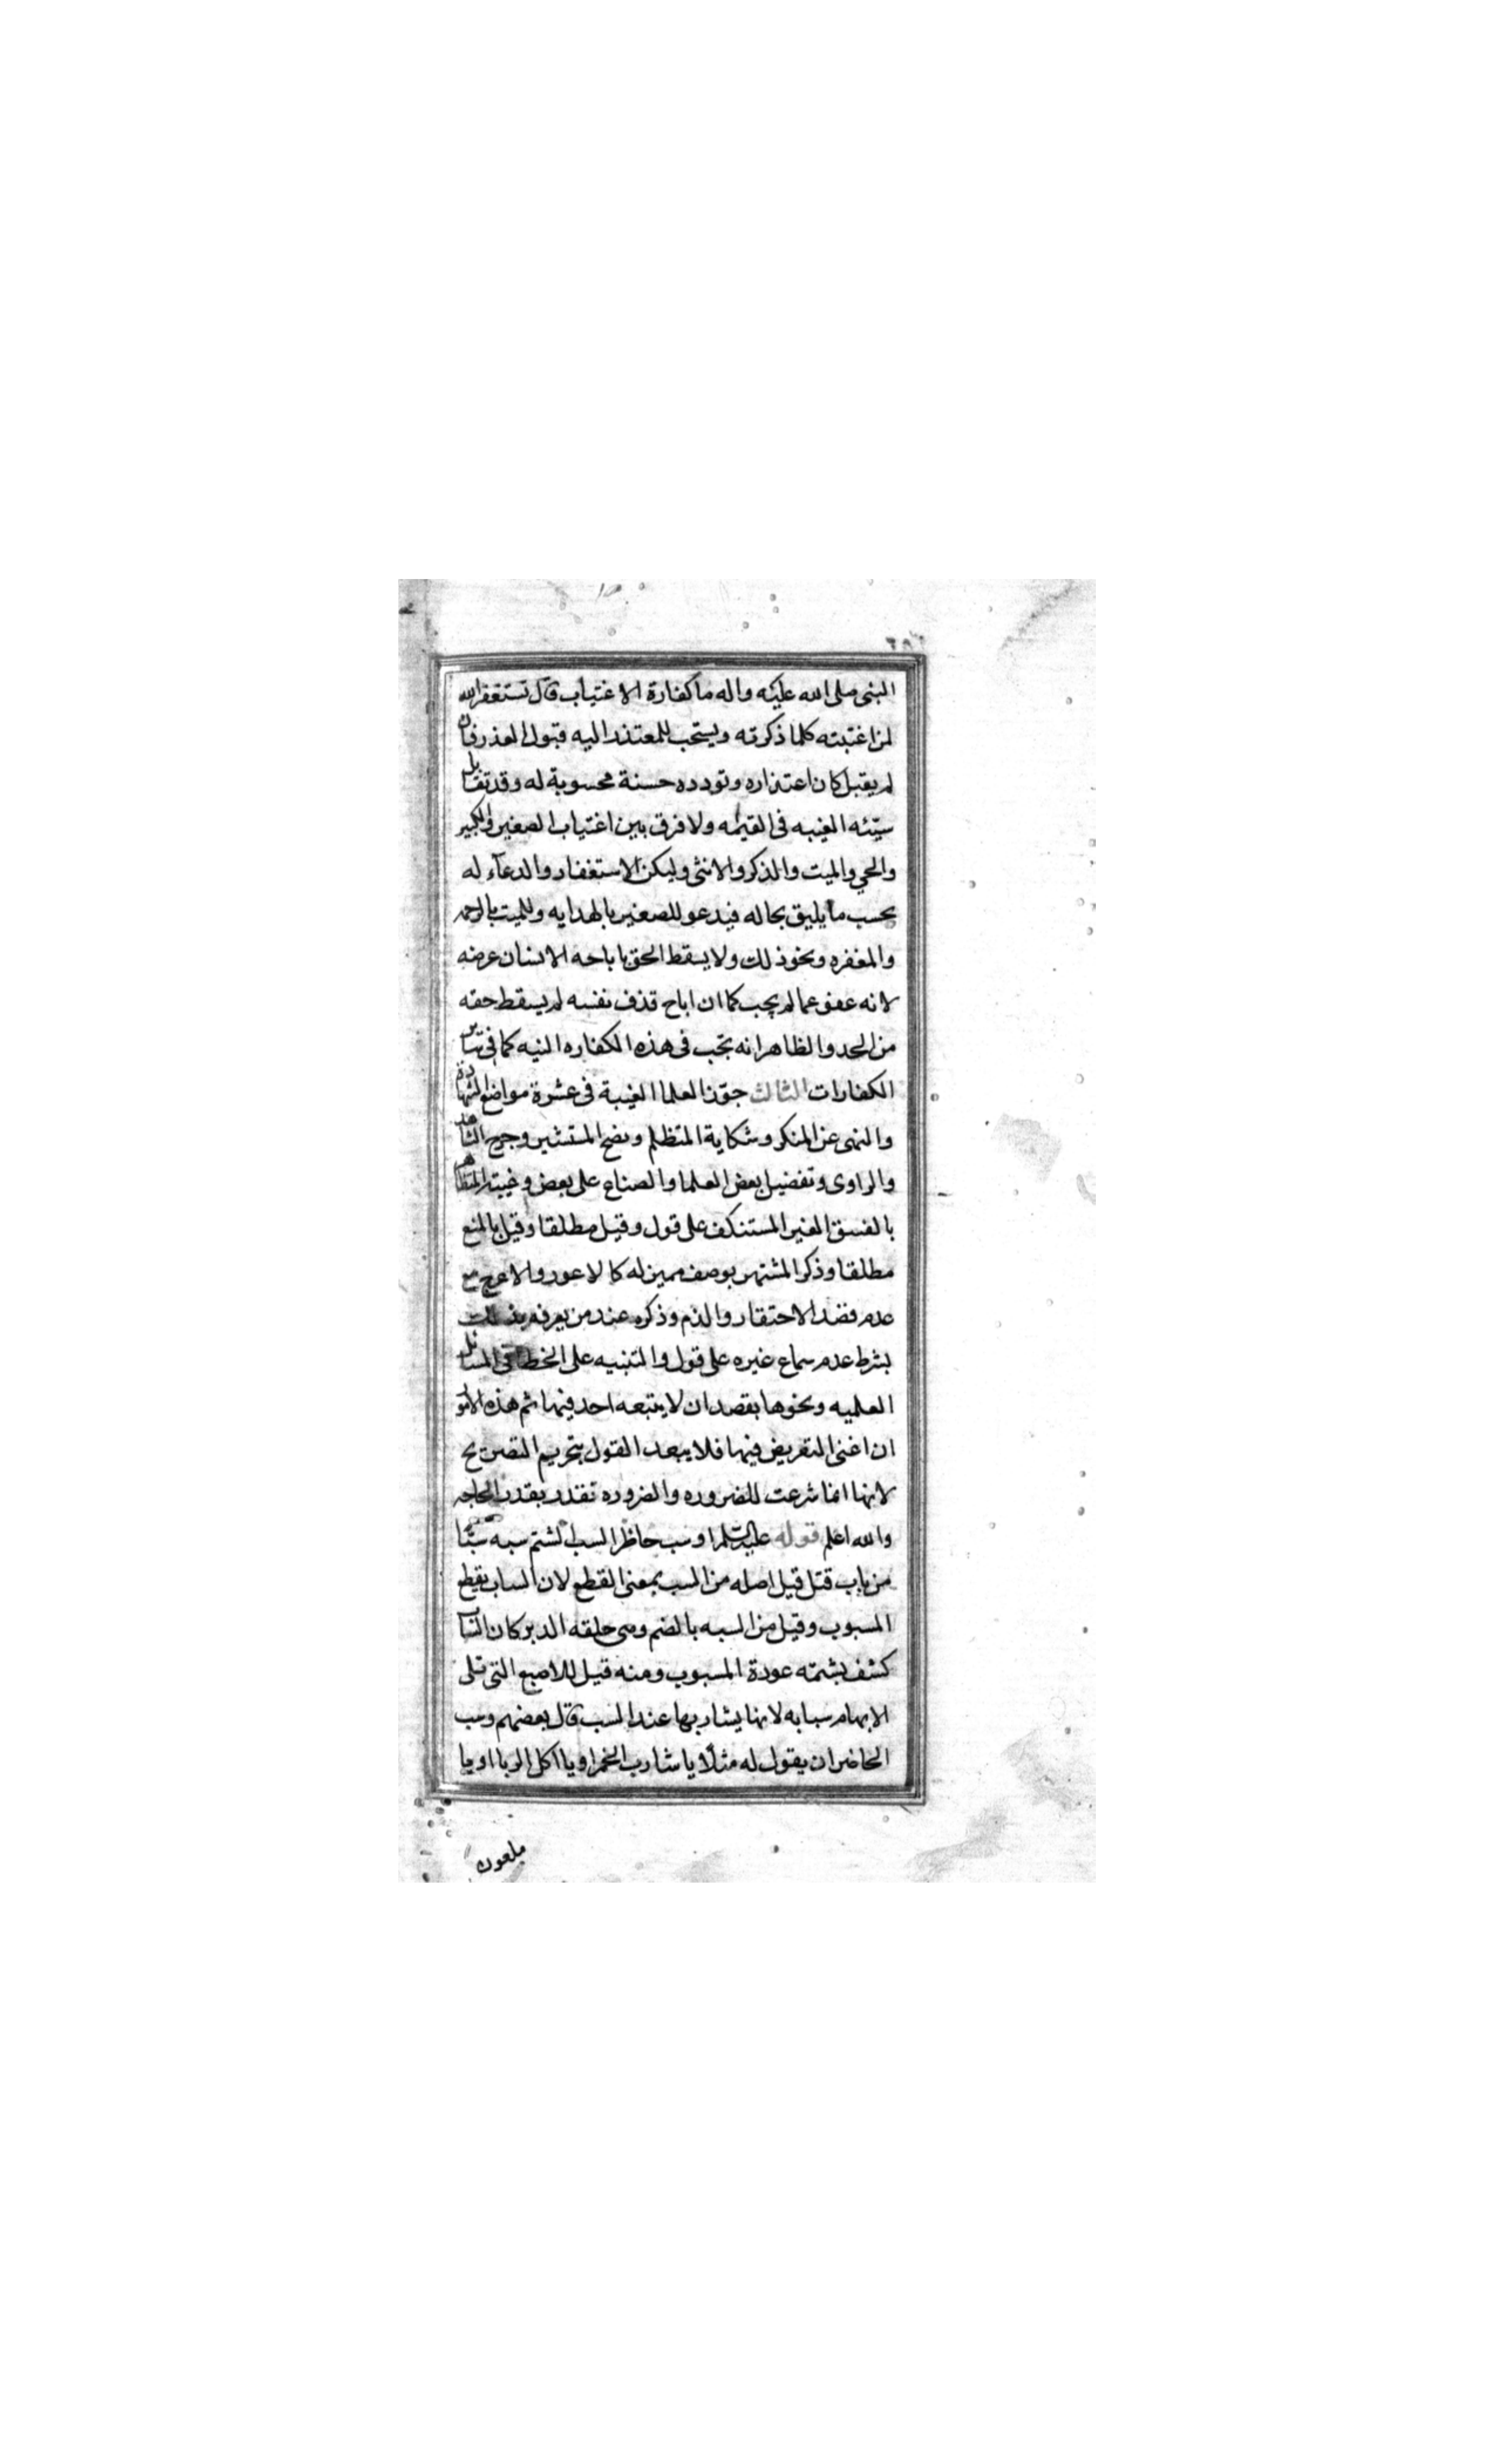 النبى صلى الله عليه واله ما كفارة الاغتياب قال تستغفر الله
لمن اغتبته كلما ذكرته ويستحب للمعتذر اليه قبول العذر فان
لم يقبل كان اعتذاره وتودده حسنة محسوبة له وقد تقابل
سيئه الغيبه فى القيمه ولا فرق بين اغتياب الصغير والكبير
والحي والميت والذكر والانثى وليكن الاستغفار والدعاء له
بحسب ما يليق بحاله فيدعو للصغير بالهدايه وللميت بالرحمه
والمغفره ونحو ذلك ولا يسقط الحق باباحه الانسان عرضه
لانه عفو عما لم يجب كما ان اباح قذف نفسه لم يسقط حقه
من الحد والظاهر انه تجب فى هذه الكفاره النيه كما فى سائر
الكفارات الثالث جوّز العلما الغيبة فى عشرة مواضع الشهادة
والنهى عن المنكر وشكاية المتظلم ونصح المستشير وجرح الشاهد
والراوى وتفضيل بعض العلما والصناع على بعض وغيبة المتظاهر
بالفسق الغير المستنكف على قول وقيل مطلقا وقيل بالمنع
مطلقا وذكر المشتهر بوصف مميز له كالاعور والاعرج مع
عدم قصد الاحتقار والذم وذكره عند من يعرفه بذلك
بشرط عدم سماع غيره على قول والتنبيه على الخطا فى المسائل
العلميه ونحوها بقصد ان لا يتبعه احد فيها ثم هذه الامور
ان اغنى التعريض فيها فلا يبعد القول بتحريم التصريح
لانها انما شرعت للضروره والضروره تقدر بقدر الحاجه
والله اعلم قوله عليه السلم او سب حاضر السب الشتم سبه سبّا
من باب قتل قيل اصله من السب بمعنى القطع لان الساب يقطع
المسبوب وقيل من السبه بالضم وهى حلقه الدبر كان الساب
كشف بشتمه عورة المسبوب ومنه قيل للاصبع التى تلى
الابهام سبابه لانها يشار بها عند السب قال بعضهم وسب
الحاضر ان يقول له مثلا يا شارب الخمر او يا اكل الربا او يا
ملعون